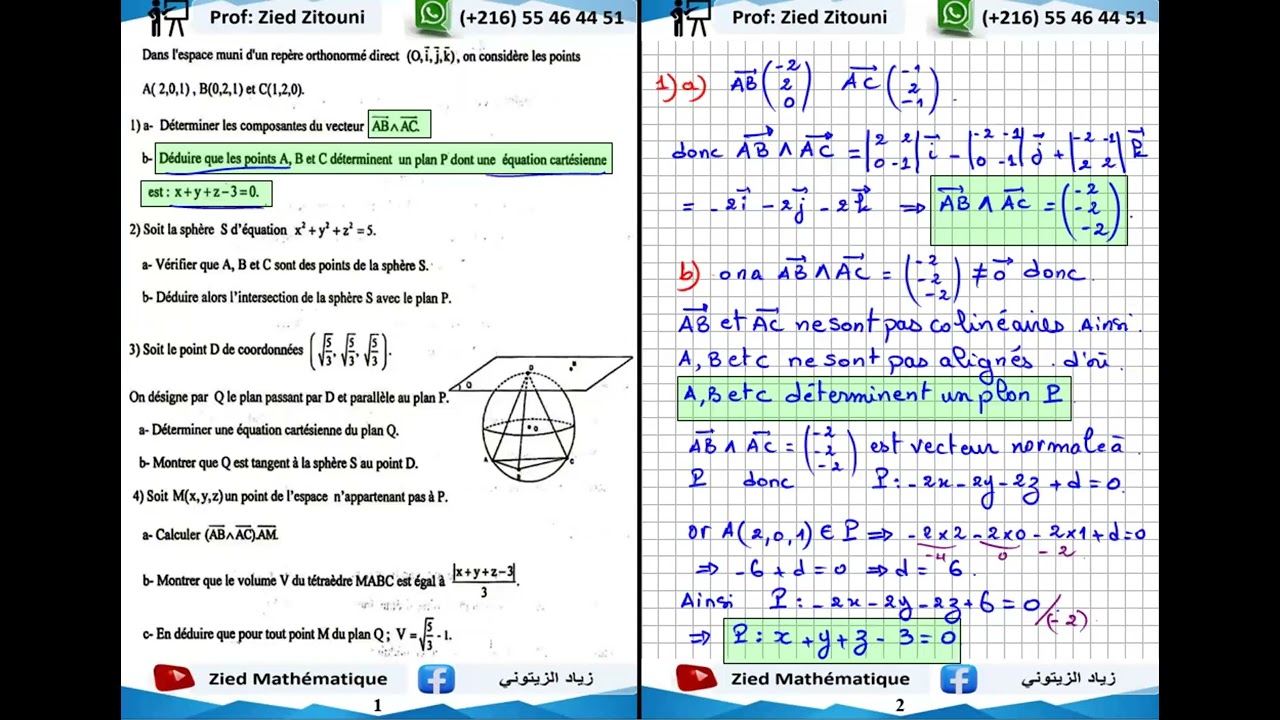 Prof: Zied Zitouni (+216) 55 46 44 51
Dans l'espace muni d'un repère orthonormé direct (O,i⃗,j⃗,k⃗), on considère les points
A( 2,0,1) , B(0,2,1) et C(1,2,0).
1) a- Déterminer les composantes du vecteur AB⃗∧AC⃗.
b- Déduire que les points A, B et C déterminent un plan P dont une équation cartésienne
est : x+y+z-3=0.
2) Soit la sphère S d'équation x²+y²+z²=5.
a- Vérifier que A, B et C sont des points de la sphère S.
b- Déduire alors l'intersection de la sphère S avec le plan P.
3) Soit le point D de coordonnées (√(5/3), √(5/3), √(5/3)).
On désigne par Q le plan passant par D et parallèle au plan P.
a- Déterminer une équation cartésienne du plan Q.
b- Montrer que Q est tangent à la sphère S au point D.
4) Soit M(x,y,z) un point de l'espace n'appartenant pas à P.
a- Calculer (AB⃗∧AC⃗).AM⃗.
b- Montrer que le volume V du tétraèdre MABC est égal à |x+y+z-3|/3.
c- En déduire que pour tout point M du plan Q ; V=√(5/3) - 1.
Q
A
B
C
Zied Mathématique زياد الزيتوني
1
Prof: Zied Zitouni (+216) 55 46 44 51
1) a) AB⃗(-2 2 0) AC⃗(-1 2 -1).
donc AB⃗ ∧ AC⃗ = |2 2 0 -1| i⃗ - |-2 -1 0 -1| j⃗ + |-2 -1 2 2| k⃗
= -2i⃗ -2j⃗ -2k⃗ ⇒ AB⃗ ∧ AC⃗ = (-2 -2 -2).
b) ona AB⃗ ∧ AC⃗ = (-2 -2 -2) ≠ 0⃗ donc
AB⃗ et AC⃗ ne sont pas colinéaires Ainsi
A, B et C ne sont pas alignés. d'où
A, B et C déterminent un plan P
AB⃗ ∧ AC⃗ = (-2 -2 -2) est vecteur normale à
P donc P: -2x-2y-2z+d=0.
or A(2,0,1) ∈ P ⇒ -2×2 -2×0 -2×1+d=0
-4 0 -2
⇒ -6+d=0 ⇒ d=6.
Ainsi P: -2x-2y-2z+6=0 /(-2)
⇒ P: x+y+z-3=0
Zied Mathématique زياد الزيتوني
2